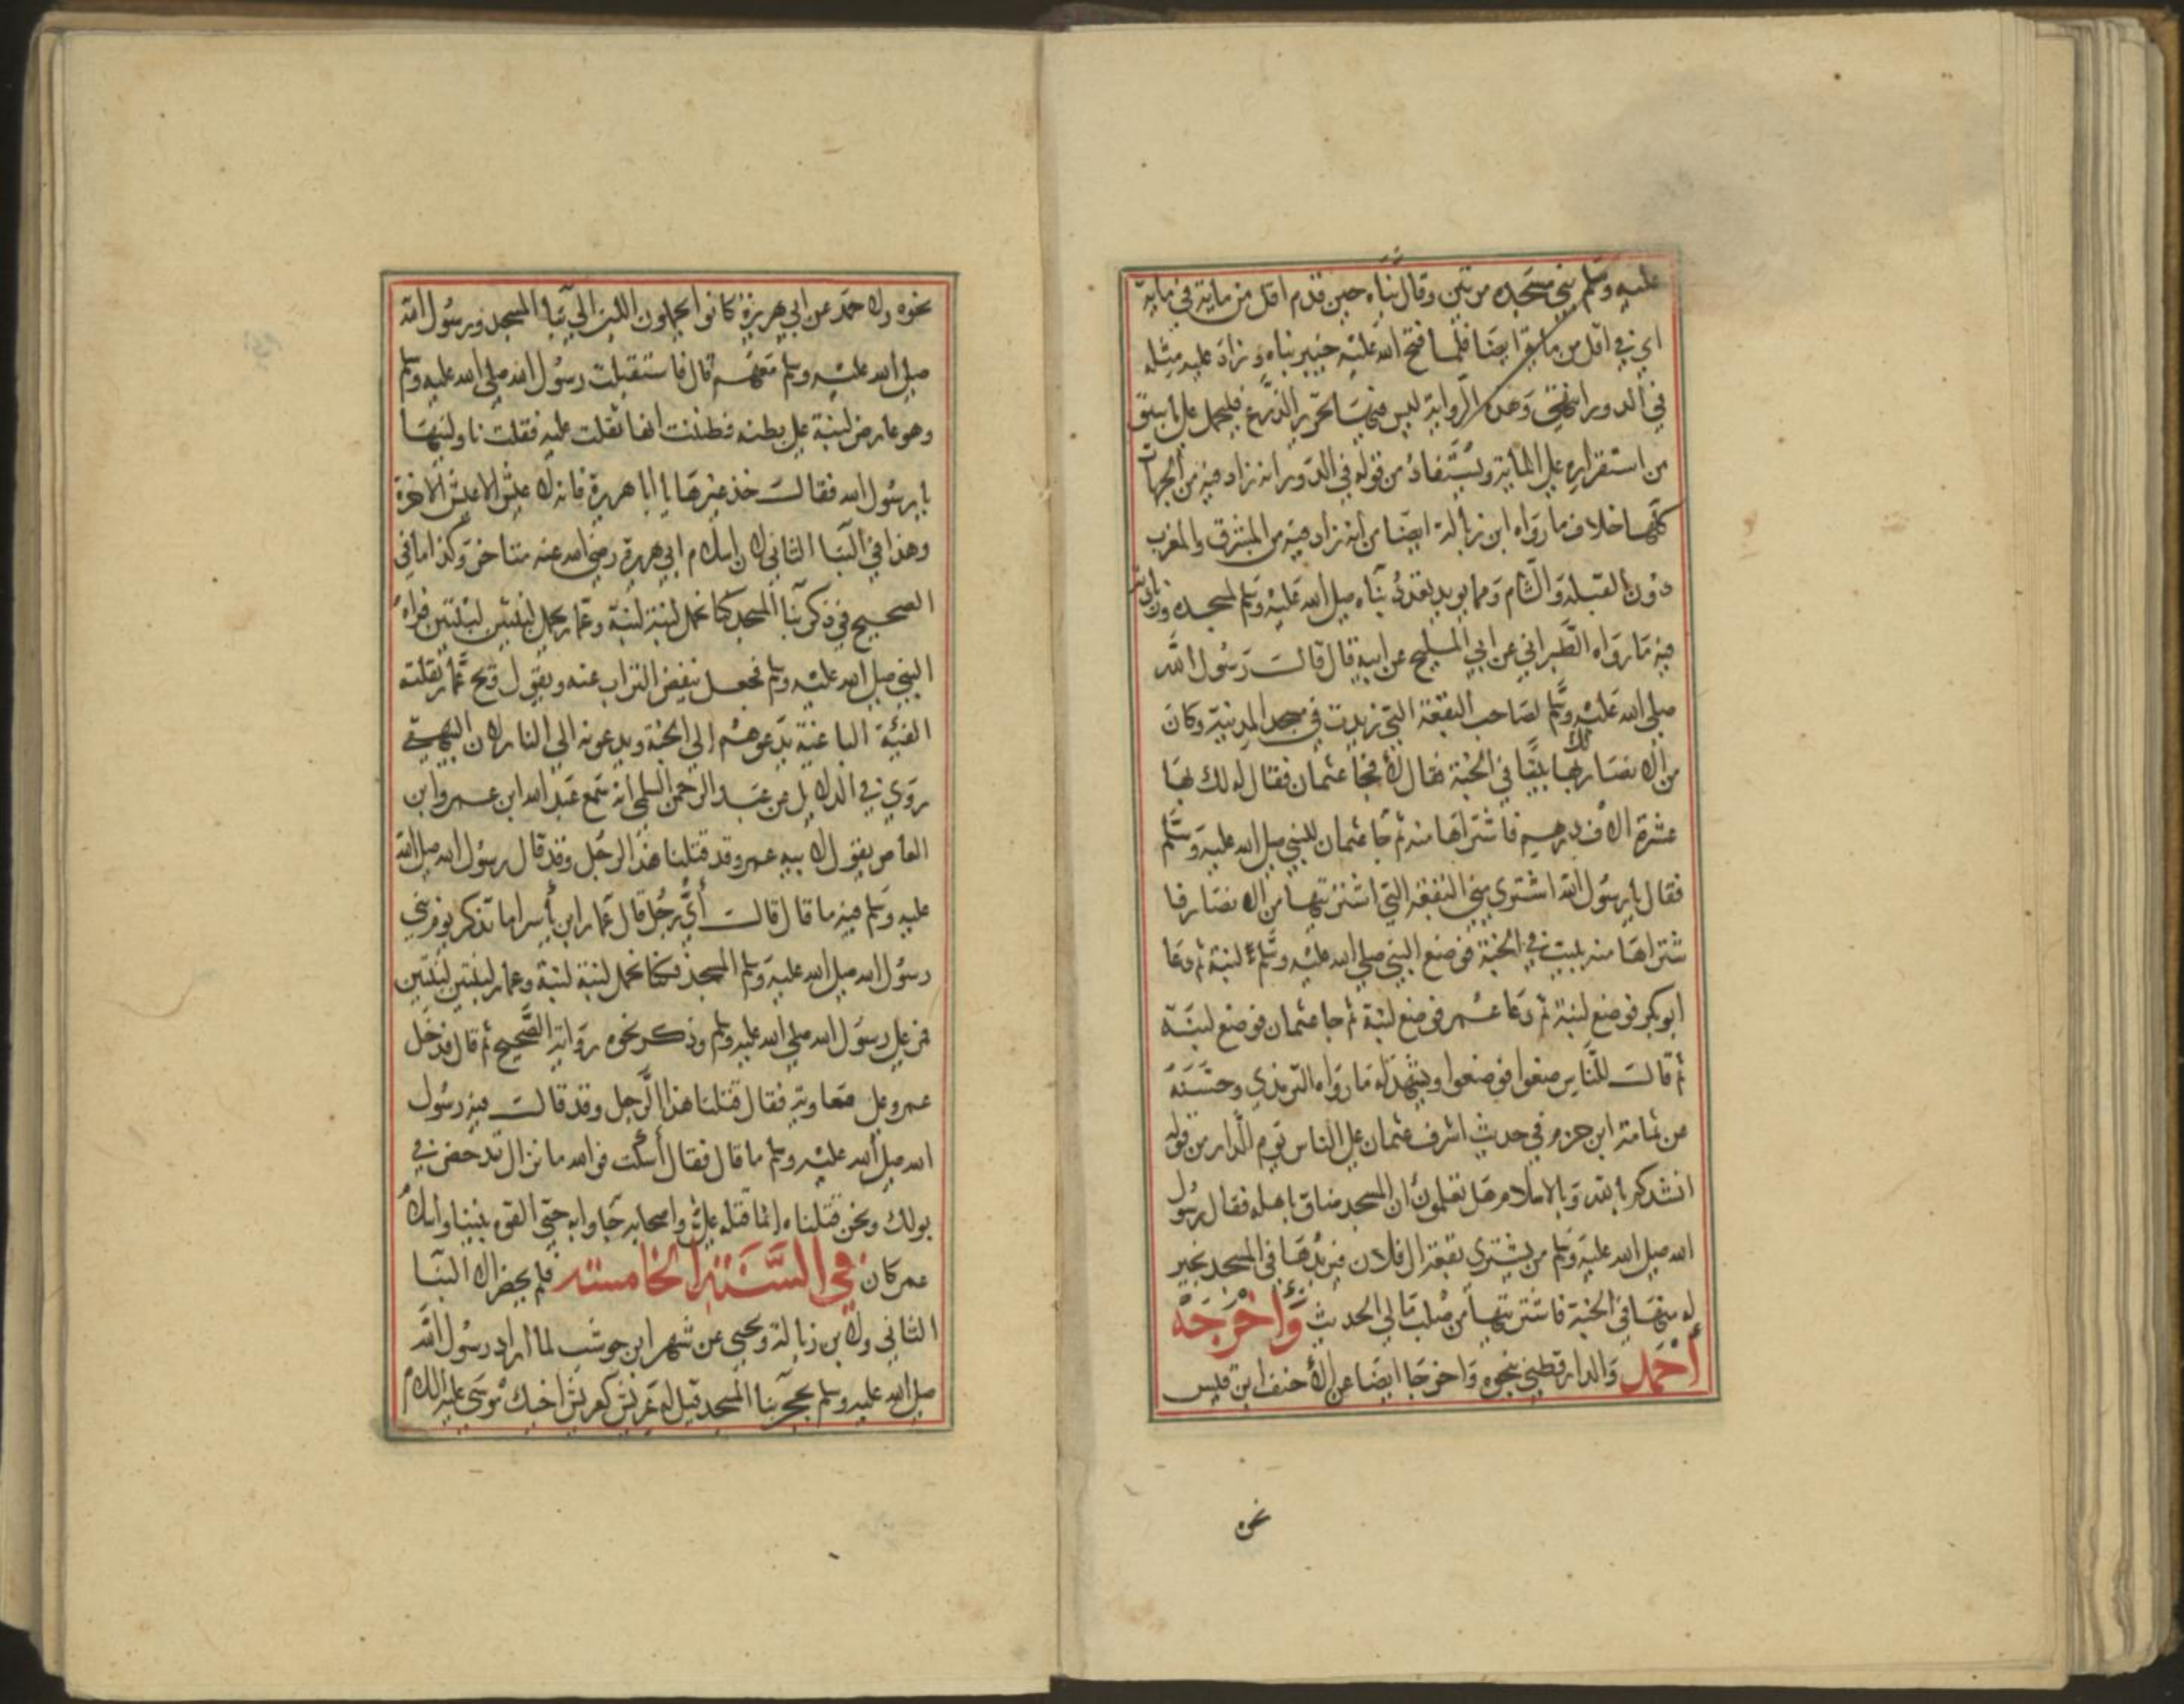 عليه وسلم بني مسجده مرتين وقال بناه حين قدم اقل من ماية في ماية
اي في اقل من ماية ايضا فلما فتح الله عليه خيبر بناه وزاد عليه مثله
في الدور انتهى وهذه الرواية ليس فيها تحرير الذرع فليحمل على ما سبق
من استقراره على الماية ويستفاد من قوله في الدور انه زاد فيه من الجهات
كلها خلاف ما رواه ابن زبالة ايضا من انه زاد فيه من المشرق والمغرب
دون القبلة والشام ومما يويد تعدد بناه صلى الله عليه وسلم لمسجده
فيه ما رواه الطبراني عن ابي المليح عن ابيه قال قالت رسول الله
صلى الله عليه وسلم لصاحب البقعة التي زيدت في مسجد المدينة وكان
من الانصار لك بها بيتا في الجنة فقال لا فجا عثمان فقال له لك بها
عشرة الاف درهم فاشتراها منه ثم جا عثمان للنبي صلى الله عليه وسلم
فقال يا رسول الله اشتري مني البقعة التي اشتريتها من الانصار فا
شتراها منه ببيت في الجنة فوضع النبي صلى الله عليه وسلم لبنة ثم دعا
ابو بكر فوضع لبنة ثم دعا عمر فوضع لبنة ثم جا عثمان فوضع لبنة
ثم قالت للناس ضعوا فوضعوا ويشهد له ما رواه الترمذي وحسنه
عن ثمامة ابن حزم في حديث اشرف عثمان على الناس يوم الدار من قوله
انشدكم بالله وبالاسلام هل تعلمون ان المسجد ضاق باهله فقال رسول
الله صلى الله عليه وسلم من يشتري بقعة ال فلان فيزيدها في المسجد بخير
له منها في الجنة فاشتريتها من صلب مالي الحديث وأخرجه
أحمد والدارقطني بنحوه واخرجا ايضا عن الأحنف ابن قيس
نحوه
نحوه ولاحمد عن ابي هريرة كانوا يحملون اللبن الي بنا المسجد ورسول الله
صلى الله عليه وسلم معهم قال فاستقبلت رسول الله صلى الله عليه وسلم
وهو عارض لبنة على بطنه فظننت انها ثقلت عليه فقلت ناولنيها
يا رسول الله فقالت خذ غيرها يا ابا هريرة فانه لا عيش الا عيش الاخرة
وهذا في البنا الثاني لان اسلام ابي هريرة رضي الله عنه متاخر وكذا ما في
الصحيح في ذكر بنا المسجد كنا نحمل لبنة لبنة وعمار يحمل لبنتين لبنتين فراه
النبي صلى الله عليه وسلم فجعل ينفض التراب عنه ويقول ويح عمار تقتله
الفئية الباغية يدعوهم الي الجنة ويدعونه الي النار لان البيهقي
روي في الدلايل عن عبد الرحمن السلمي انه سمع عبد الله ابن عمرو ابن
العاص يقول لابيه عمرو قد قتلنا هذا الرجل وقد قال رسول الله صلى الله
عليه وسلم فيه ما قال قالت أي رجل قال عمار ابن ياسر اما تذكر يوم بني
رسول الله صلى الله عليه وسلم المسجد فكنا نحمل لبنة لبنة وعمار لبنتين لبنتين
فمر على رسول الله صلى الله عليه وسلم وذكر نحوه رواية الصحيح ثم قال فدخل
عمرو على معاوية فقال قتلنا هذا الرجل وقد قالت فيه رسول
الله صلى الله عليه وسلم ما قال فقال أسكت فوالله ما تزال تدحض في
بولك ونحن قتلناه انما قتله علي واصحابه جاوا به حتي القوه بيننا واسلام
عمر كان في السنة الخامسة فلم يحضر الا البنا
الثاني ولابن زبالة ويحيي عن شهر ابن حوشب لما اراد رسول الله
صلى الله عليه وسلم بحجر بنا المسجد قيل له عريش كعريش اخيك موسي عليه السلام